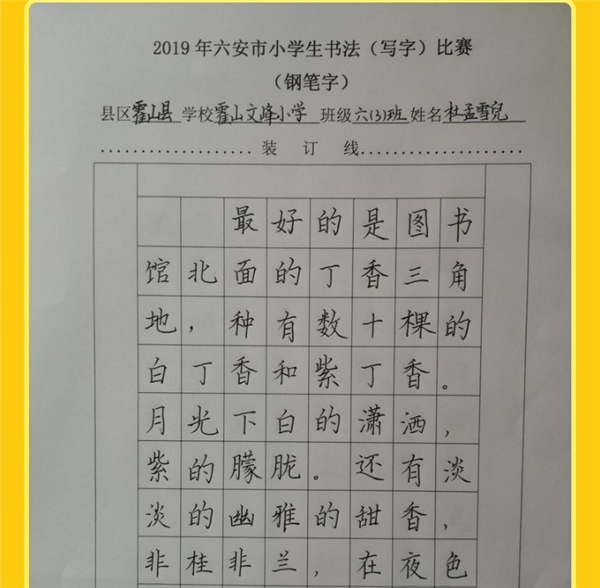 2019 年六安市小学生书法（写字）比赛
（钢笔字）
县区霍山县 学校霍山文峰小学 班级六(3)班 姓名杜孟雪儿
装 订 线
最好的是图书
馆北面的丁香三角
地，种有数十棵的
白丁香和紫丁香。
月光下白的潇洒，
紫的朦胧。还有淡
淡的幽雅的甜香，
非桂非兰，在夜色